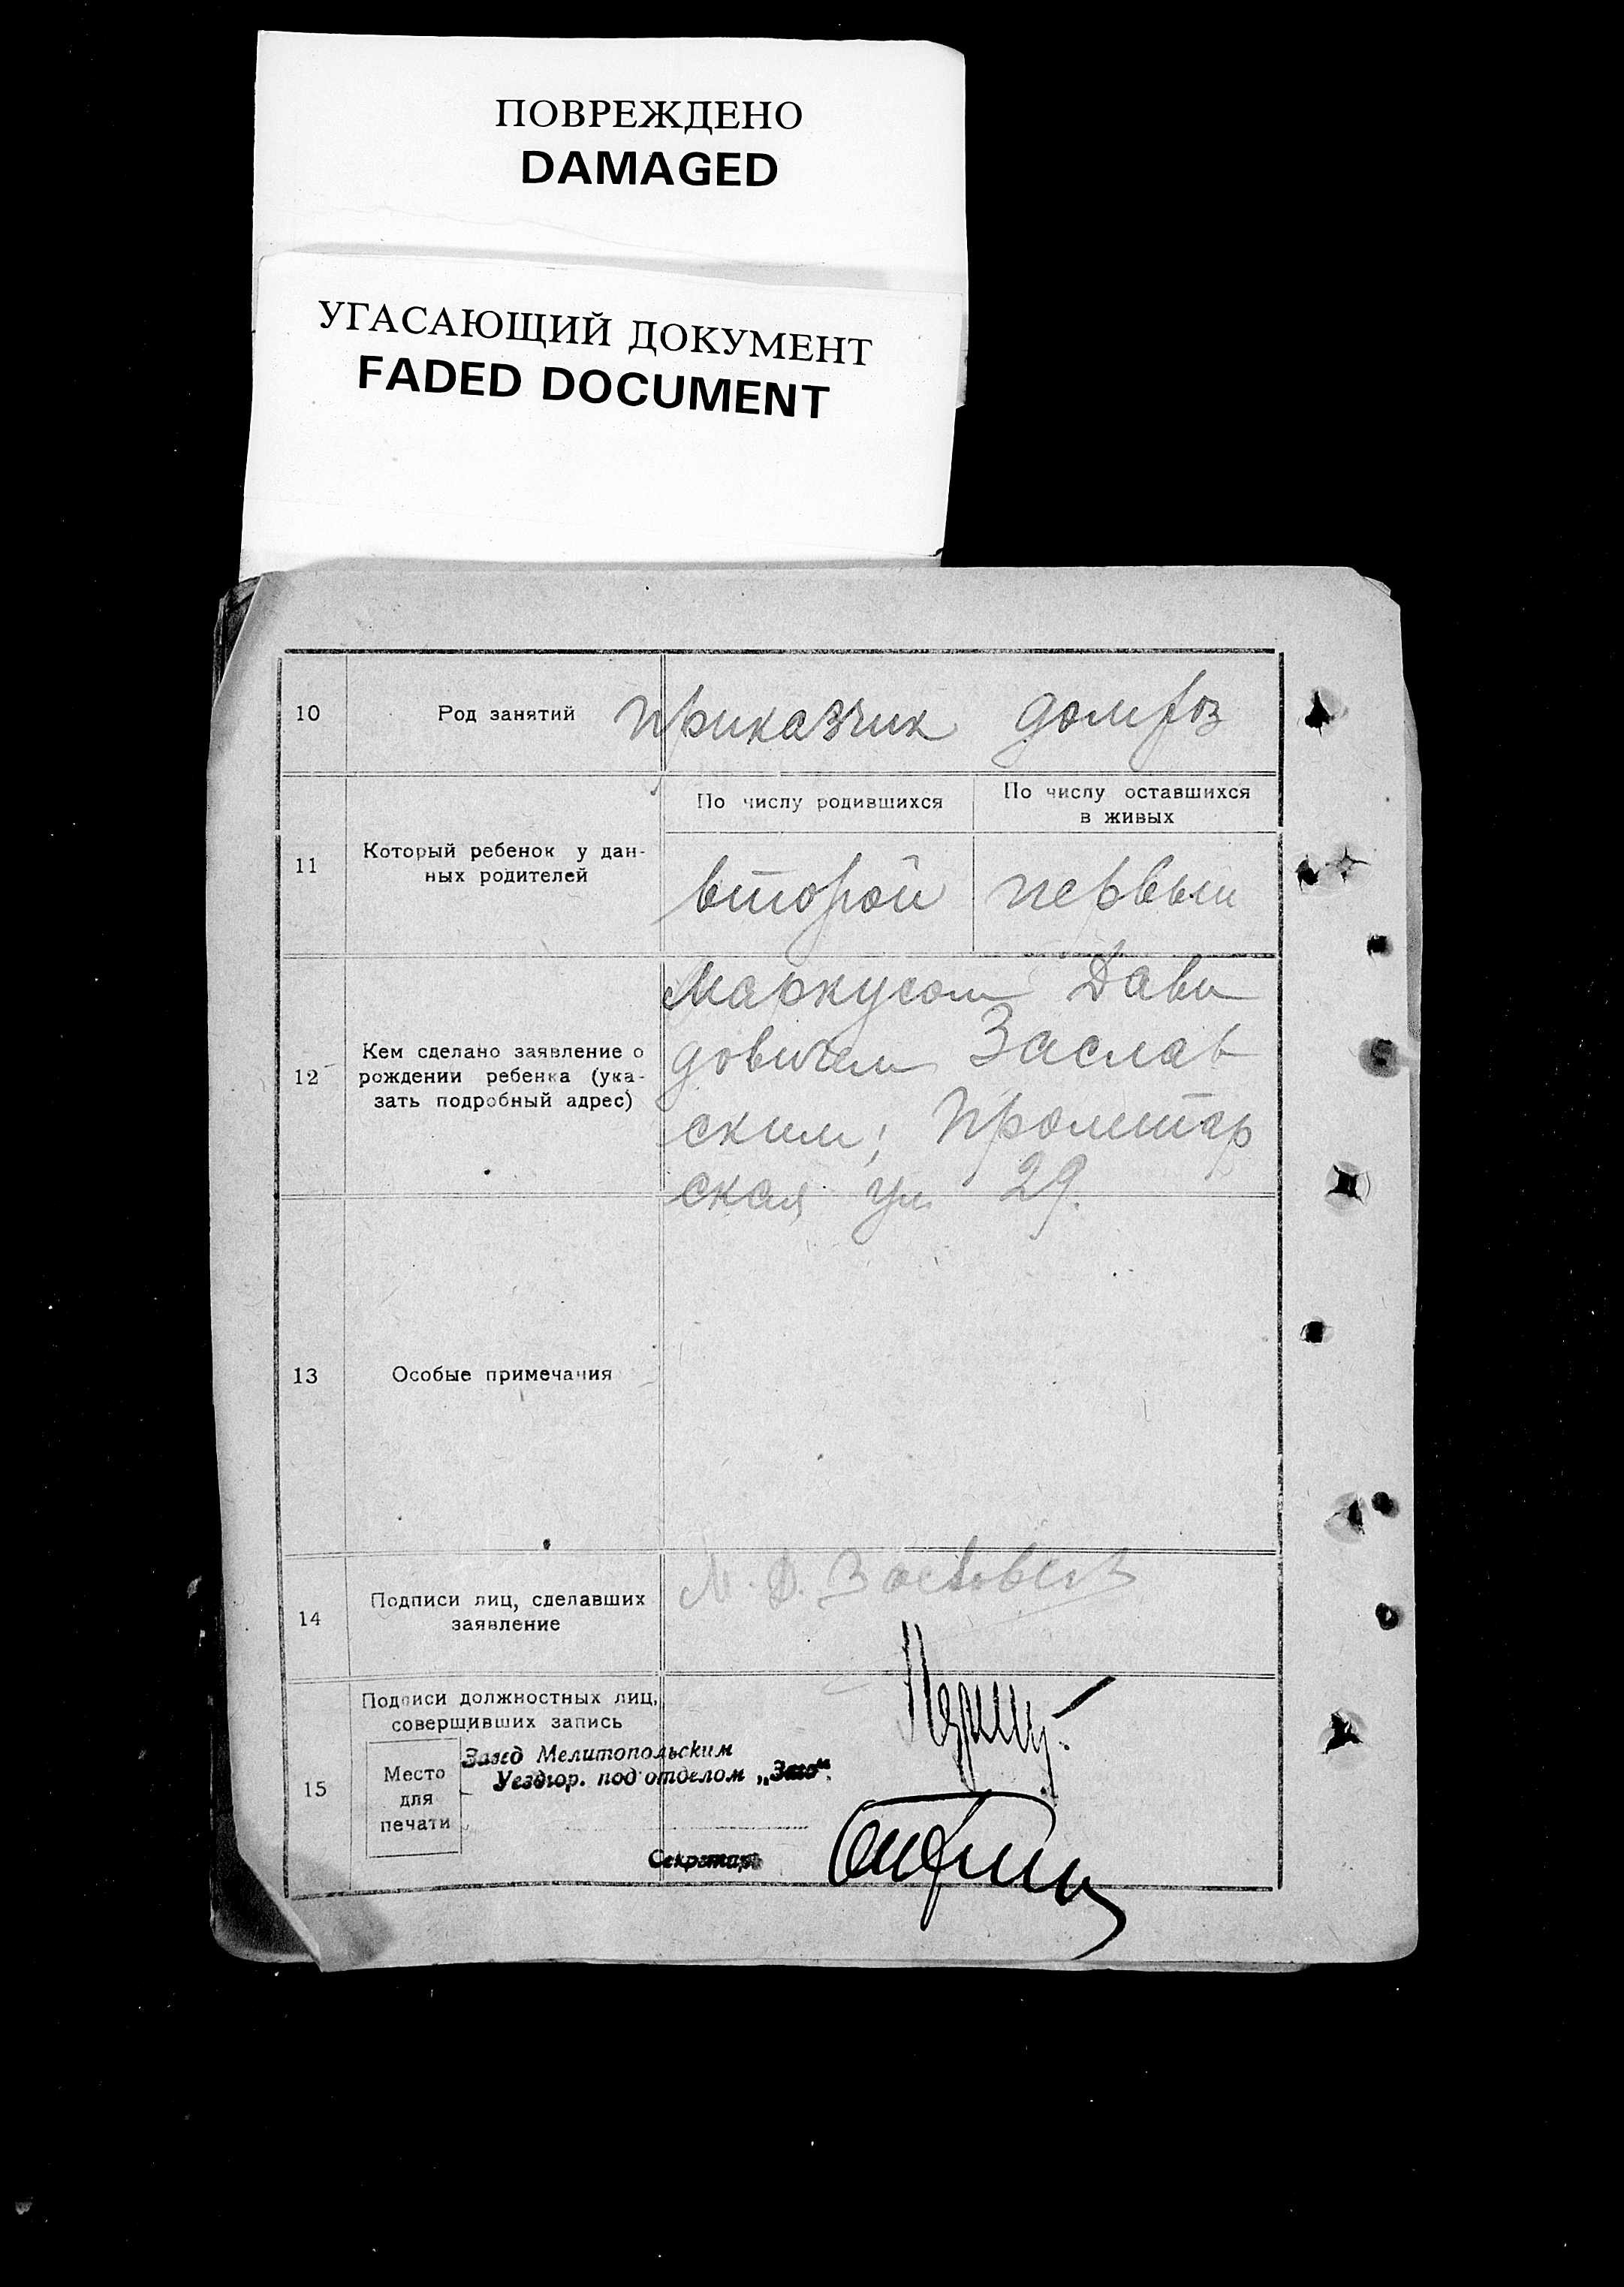 ПОВРЕЖДЕНО
DAMAGED
УГАСАЮЩИЙ ДОКУМЕНТ
FADED DOCUMENT
10
Род занятий
приказчик домхоз
11
Который ребенок у дан-
ных родителей
По числу родившихся
второй
По числу оставшихся
в живых
первый
12
Кем сделано заявление о
рождении ребенка (ука-
зать подробный адрес)
Маркусом Дави
довичем Заслав
ским; Пролетар
ская ул 29.
13
Особые примечания
14
Подписи лиц, сделавших
заявление
М. Д.
15
Подписи должностных лиц,
совершивших запись
Место
для
печати
Завед Мелитопольским
Уездгор. подотделом „Загс“.
Секретарь